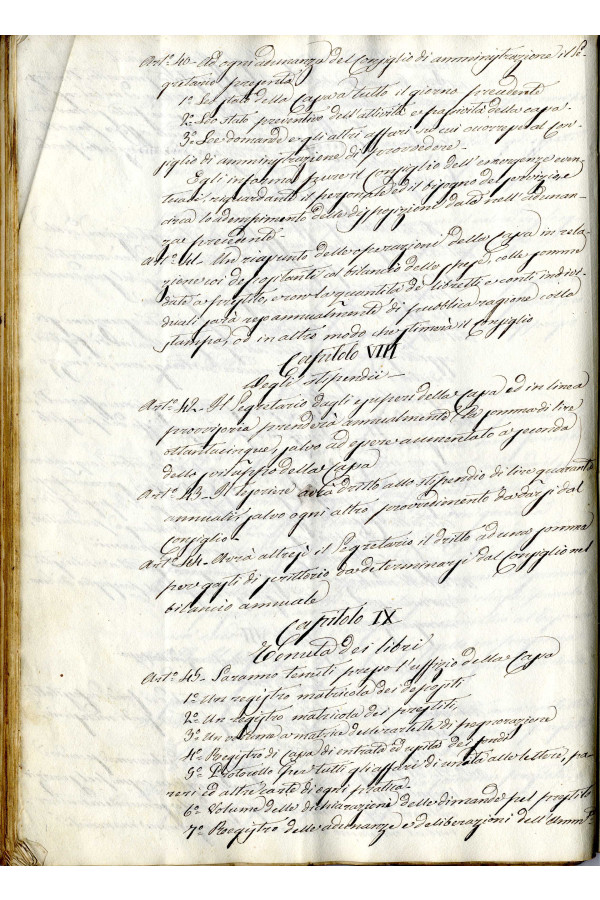 Art.º 40 - Ad ogni adunanza del Consiglio di amministrazione il Se-
gretario presenta
1º Lo stato della Cassa a tutto il giorno precedente
2º Lo stato preventivo dell'attività e passività della cassa
3º Le domande e gli altri affari su cui occorre al Con-
siglio di amministrazione di provvedere.
Egli informa pure il Consiglio dell'emergenze even-
tuali riguardanti il personale ed il bisogno del servizio e
circa lo adempimento delle disposizioni date nell'adunan-
za precedente
Art.º 41 - Un riassunto delle operazioni della Cassa in rela-
zione coi depositanti col bilancio dello stesso, colle somme
date a prestito, e con la quantità de' libretti e conti indivi-
duali sarà reso annualmente di pubblica ragione colla
stampa, od in altro modo che stimerà il Consiglio
Capitolo VIII
Degli stipendii
Art.º 42 - Il Segretario dagli esuberi della Cassa ed in linea
provvisoria prenderà annualmente la somma di lire
ottantacinque, salvo ad essere aumentato a seconda
dello sviluppo della Cassa
Art.º 43 - Il avrà dritto allo stipendio di lire quaranta
annuali, salvo ogni altro provvedimento da darsi dal
Consiglio -
Art.º 44 - Avrà altresì il Segretario il dritto ad una somma
per gasti di scrittorio da determinarsi dal Consiglio nel
bilancio annuale
Capitolo IX
Tenuta dei libri
Art.º 45 - Saranno tenuti presso l'uffizio della Cassa
1º Un registro matricola dei depositi
2º Un registro matricola dei prestiti,
3º Un volume a matrice delle cartelle di pegnorazione
4º Registro di Cassa di entrata ed uscita dei fondi
5º Protocollo per tutti gli affari di unità alle lettere, pa-
reri ed altre carte di ogni pratica -
6º Volume delle dichiarazione delle dimande pel prestito
7º Registro delle adunanze e deliberazioni dell'Amm.ne